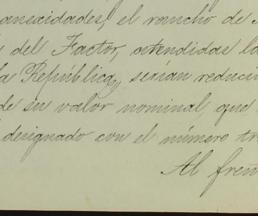 anexidades, el rancho de
del Factor, atendidas la
la República, serían reduci
de su valor nominal, que
designado con el número tr
Al fren